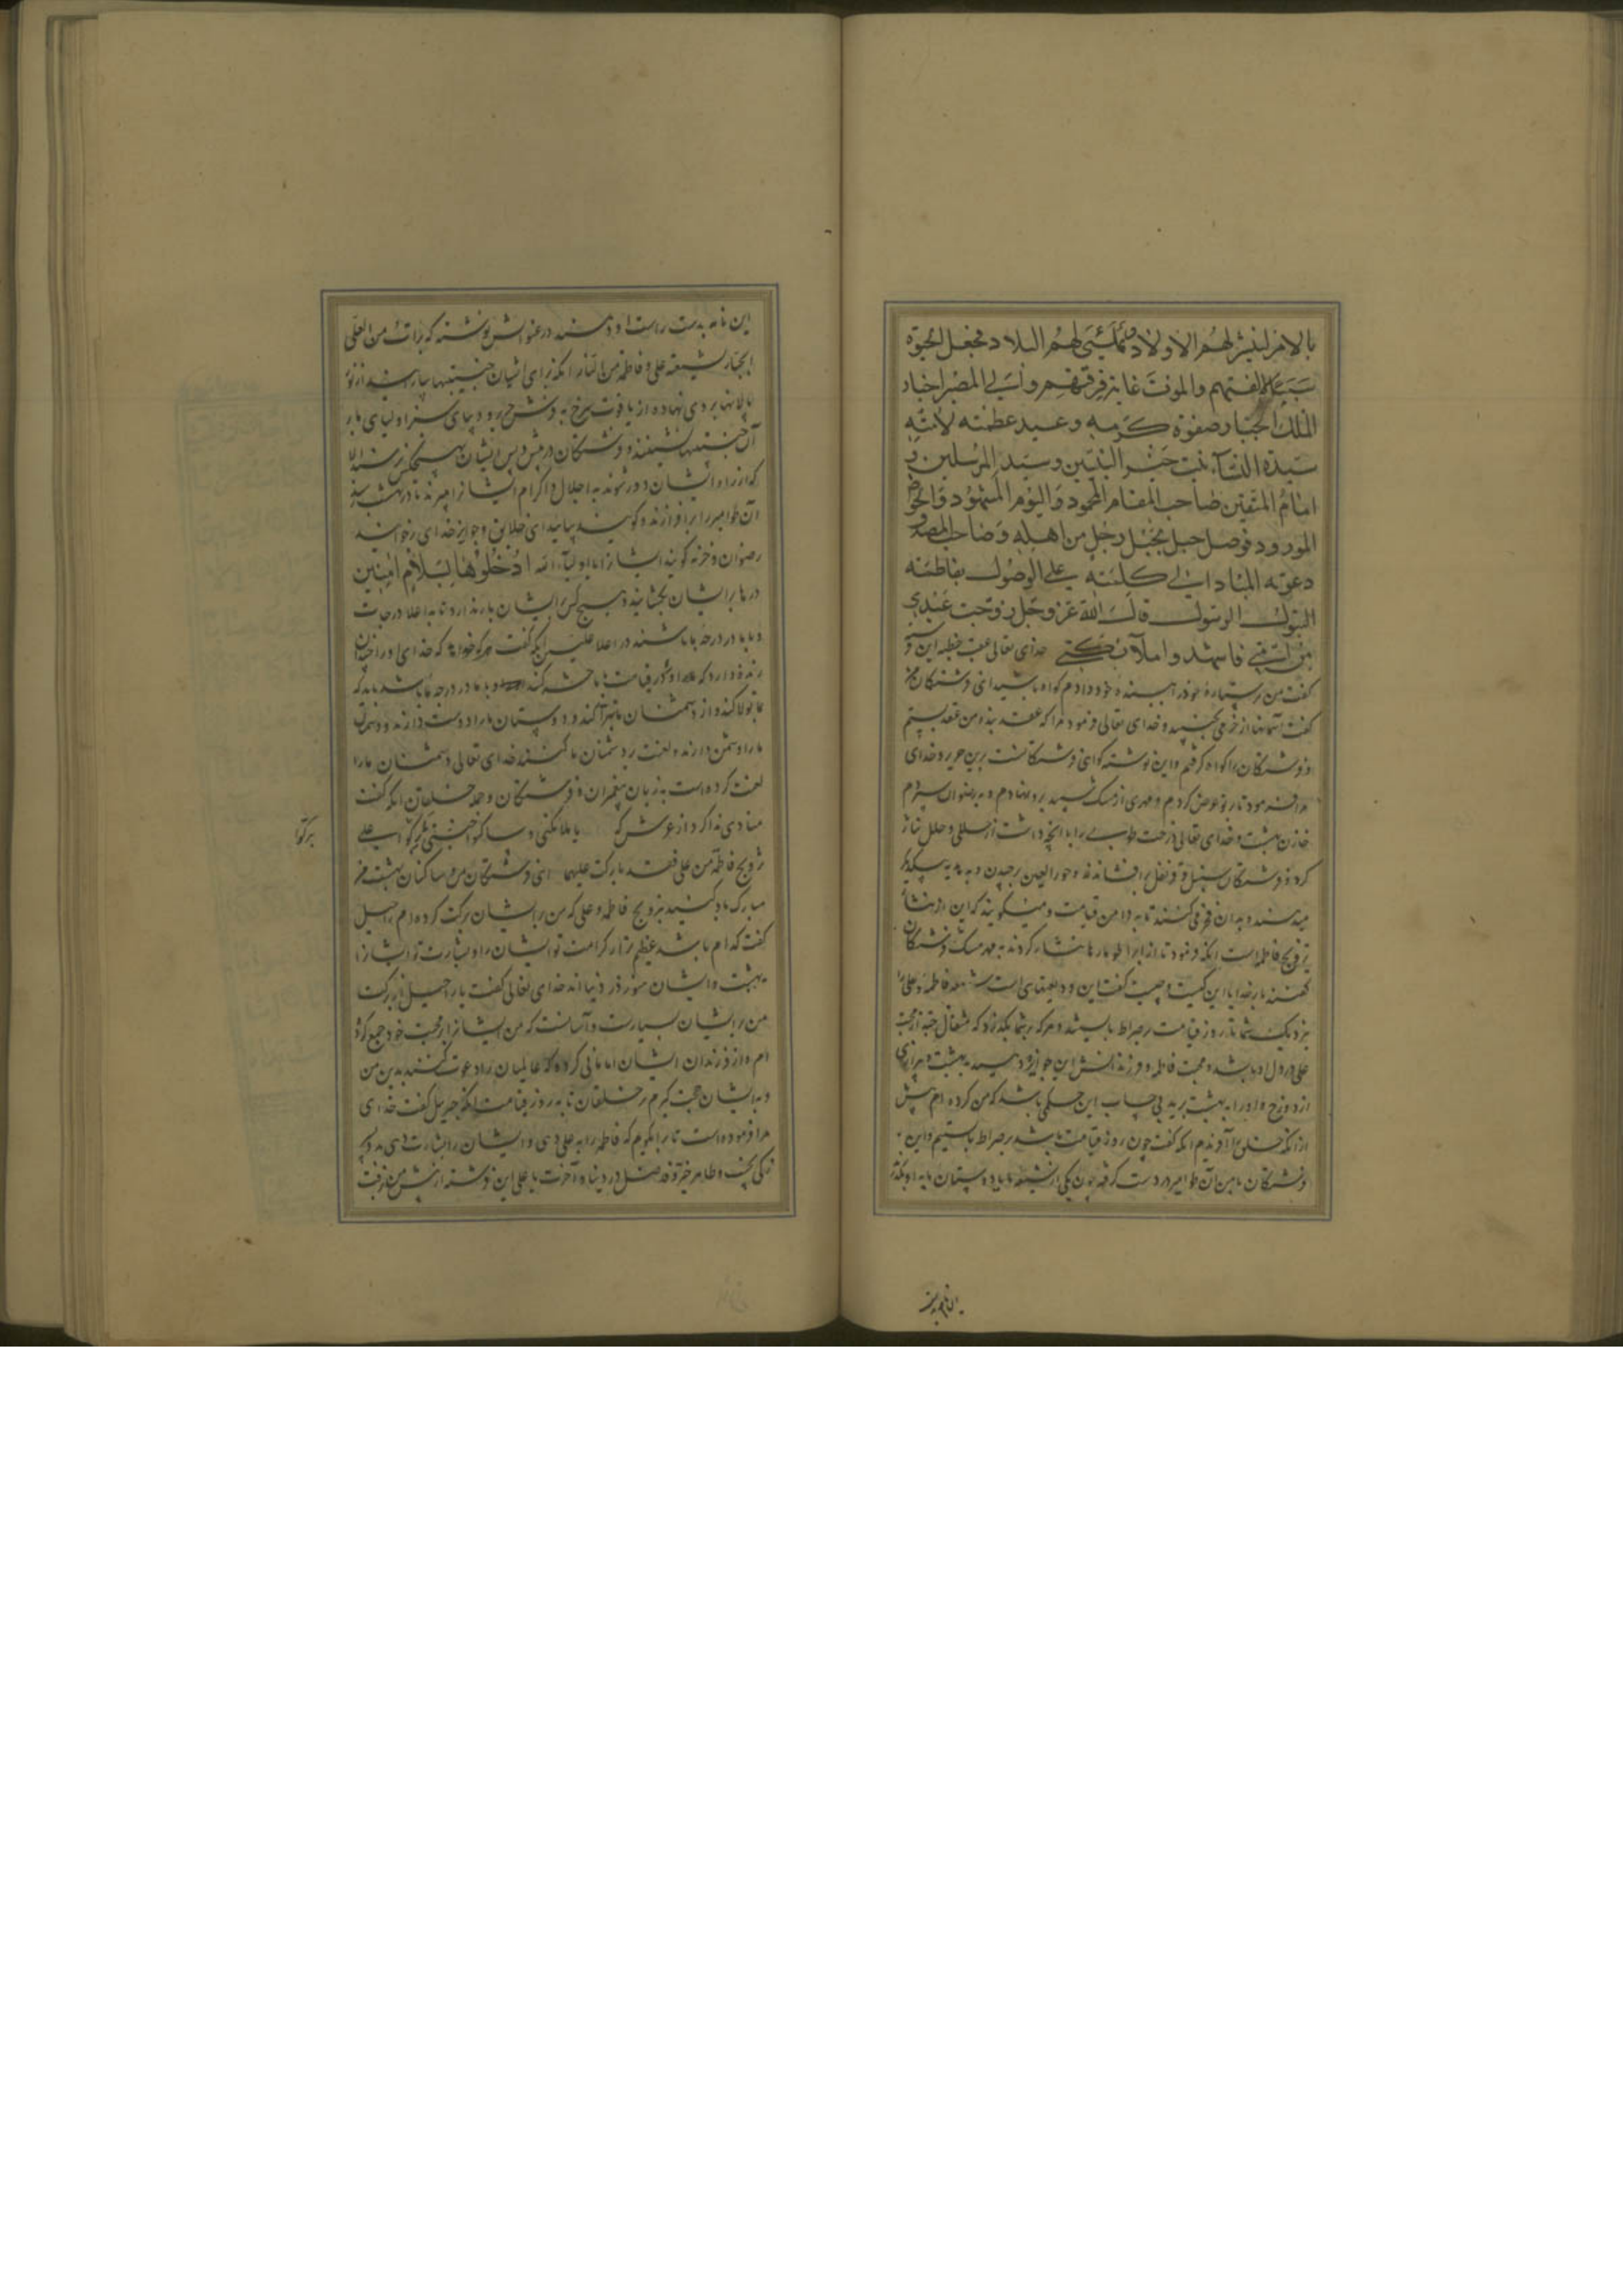 بالامر لینشر لهم الاولاد و لهم البلاد فجعل الحیوة
سببا لالفتهم والموت غایة فرقتهم والی المصیر اختار
الملک الجبار صفوة کرمه وعبید عظمته لامته
سیدة النساء بنت خیر النبیین وسید المرسلین و
امام المتقین صاحب المقام المحمود والیوم المشهود والحوض
المورود فوصل حبله بحبل رجل من اهله وصاحبه المصدق
دعوته المبادر الی کلمته علی الوصول بفاطمة
البتول الرسول قال الله عز وجل زوجت عبدی
من امتی فاشهدوا ملائکتی خدای تعالی عقب خطبه این
گفت من پرستاره خود را به بنده خود دادم گواه باشید ای فرشتگان من
گفت آسمانها از خرمی بجنبید و خدای تعالی فرمود مرا که عقد بند من عقد بستم
و فرشتگان را گواه گرفتم و این نوشته گواهی فرشتگانست برین حریر و خدای
مرا فرمود تا بر تو عرض کردم و مهری از مشک سپید برو نهادم و به رضوان سپردم
خازن بهشت و خدای تعالی درخت طوبی را با آنچه داشت از حلی و حلل نثار
کرد و فرشتگان سنبل و قرنفل برافشاندند و حور العین برچیدن و به هدیه به یکدیگر
میدهند و بدان فخر می کنند تا به دامن قیامت و میگویند که این از نثار
تزویج فاطمه است آنکه فرمود تا از ابر طومارها نثار کردند به مهر مشک فرشتگان
گفتند بار خدایا این کیست و چیست گفت این ودیعتهای است شیعه فاطمه و علی را
بنزدیک شما تا روز قیامت بر صراط بایستید و هر که بر شما بگذرد که مثقال حبه از محبت
علی در دل او باشد و محبت فاطمه و فرزندانش این جواز بدو دهید به بهشت و بیزاری
از دوزخ و او را به بهشت برید بی حساب این حکمی باشد که من کرده ام پیش
از آنکه خلق را آفریدم آنکه گفت چون روز قیامت باشد بر صراط بایستیم و این
فرشتگان با من آن طوامیر در دست گرفته چون یکی از شیعه ما یا دوستان ما به او بگذرد
این نامه بدست
این نامه بدست راست او دهند در عنوانش نوشته که براءت من العلی
الجبار لشیعة علی و فاطمة من النار آنکه برای ایشان جنیبتها بیارند از نور
پالانها بر وی نهاده از یاقوت سرخ به فرش رو دیبای سبز اولیای ما بر
آن جنیبتها نشینند و فرشتگان در پیش و پس ایشان هیچکس نرسد الا
که از راه ایشان دور شوند به اجلال و اکرام ایشانرا میبرند تا در بهشت رسند
آن طوامیر را برافرازند و گویند بیایید ای خلایق و جوایز خدای برخوانید
رضوان و خزنه گویند ایشانرا یا اولیاء الله ادخلوها بسلام امنین
درها بر ایشان بگشایند هیچ کس ایشان را باز ندارد تا به اعلا درجات
و با ما در درجه ما باشند در اعلا علیین آنکه گفت هر که خواهد که خدای او را چنان
زنده دارد که او در قیامت با ما حشر کند و با ما در درجه ما باشد باید که
ما تولا کند و از دشمنان ما تبرا کند و دوستان ما را دوست دارند و دشمنان
ما را دشمن دارند و لعنت بر دشمنان ما کنند خدای تعالی دشمنان ما را
لعنت کرده است به زبان پیغمبران و فرشتگان و جمله خلقان آنکه گفت
منادی ندا کرد از عرش که یا ملائکتی و ساکنوا جنتی برکوا علی
برکوا
تزویج فاطمة من علی فقد بارکت علیهما ای فرشتگان من و ساکنان بهشت من
مبارک باد کنید بتزویج فاطمه و علی که من بر ایشان برکت کرده ام راحیل
گفت کدام باشد عظیم تر از کرامت تو ایشان را و بشارت تو ایشانرا
بهشت و ایشان هنوز در دنیا اند خدای تعالی گفت یا راحیل از برکت
من بر ایشان بسیارست و آسانست که من ایشانرا بر محبت خود جمع کرده
ام و از فرزندان ایشان امامانی کرده که عالمیان را دعوت کنند بدین من
و به ایشان حجت گیرم بر خلقان تا به روز قیامت آنکه جبریل گفت خدای
مرا فرموده است تا ترا بگویم که فاطمه را به علی دهی و ایشان را بشارت دهی به دو پسر
زکی نجیب و طاهر خیر و فاضل در دنیا و آخرت یا علی این فرشته از پیش من نرفت